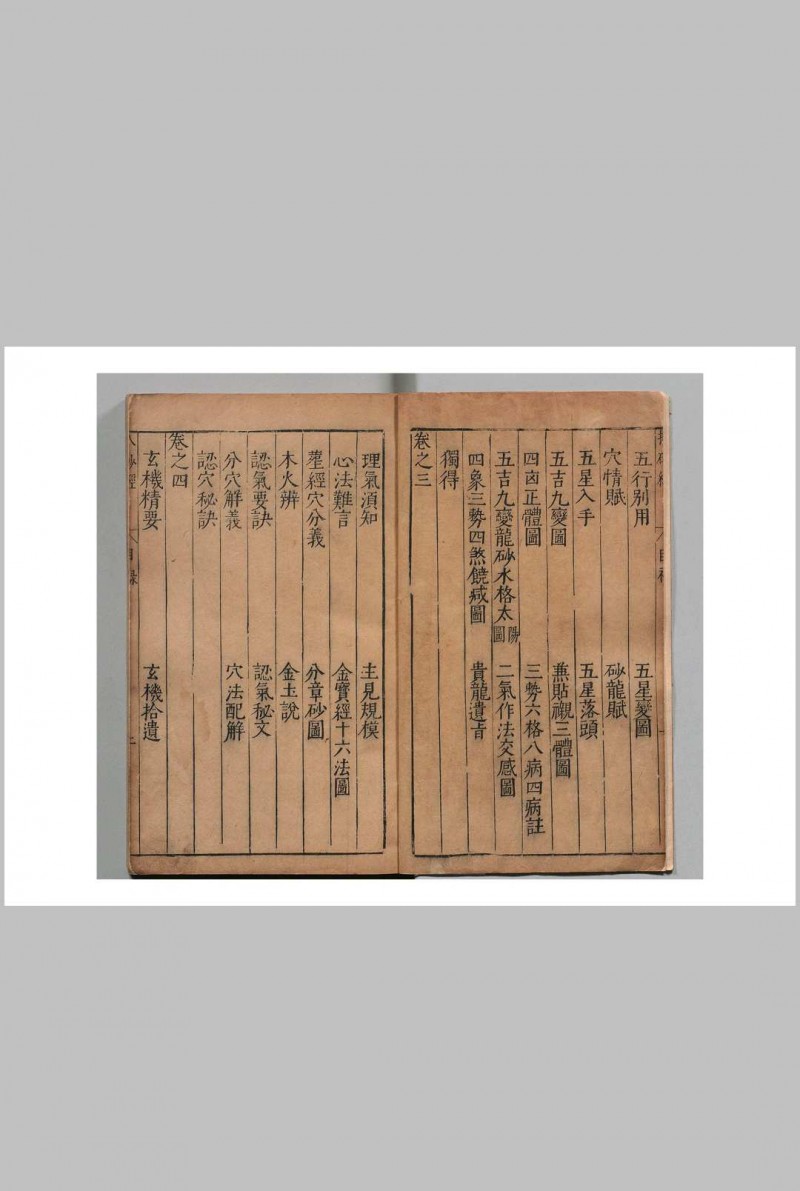 五行別用 五星變圖
穴情賦 砂龍賦
五星入手 五星落頭
五吉九變圖 無貼襯三體圖
四凶正體圖 三勢六格八病四病註
五吉九變龍砂水格太陽圖 二氣作法交感圖
四象三勢四煞饒减圖 貴龍遺音
獨得
卷之三
理氣須知 主見規模
心法難言 金寶經十六法圖
塟經穴分義 分章砂圖
木火辨 金土說
認氣要訣 認氣秘文
分穴解義 穴法配解
認穴秘訣
卷之四
玄機精要 玄機拾遺
目錄